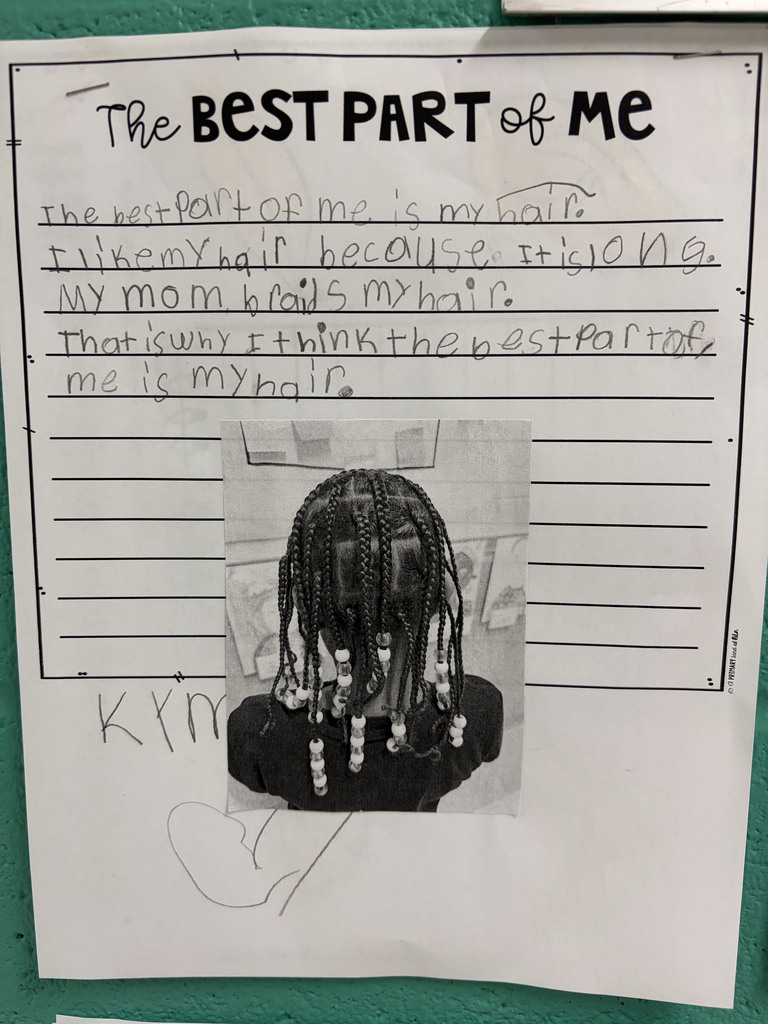 The BEST PART of ME
The best part of me is my hair.
I like my hair because It is long.
My mom braids my hair.
That is why I think the best part of
me is my hair.
© A PRIMARY kind of life